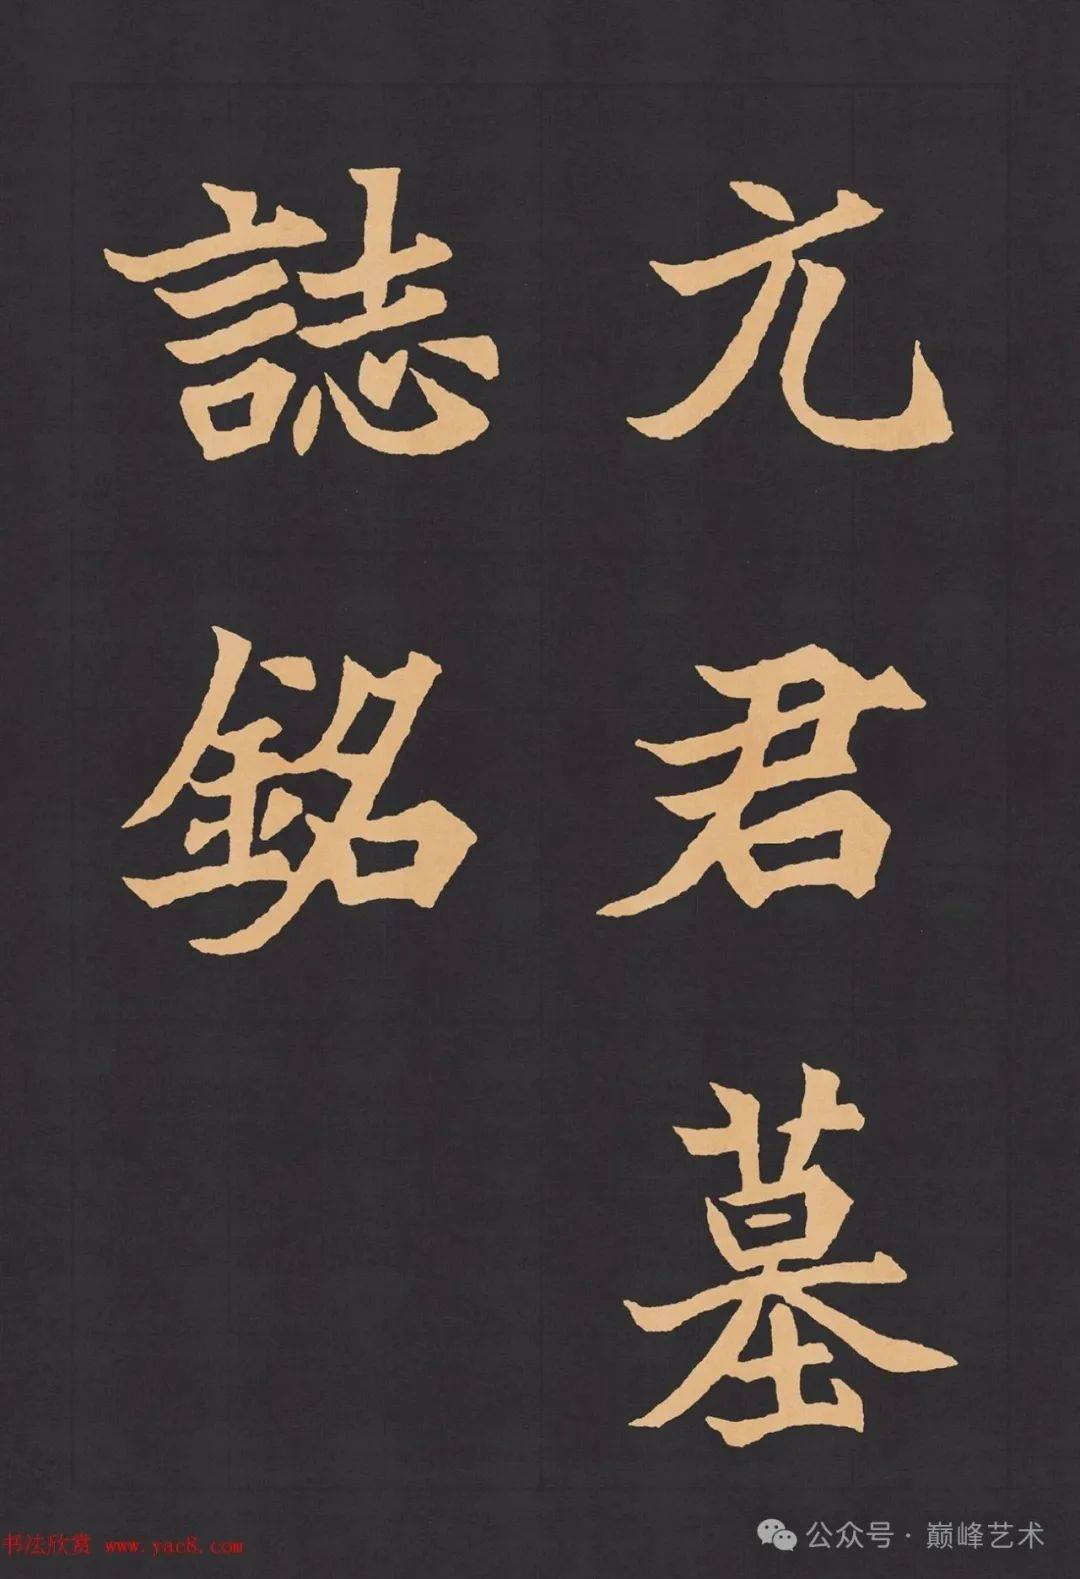 元君墓
誌銘
书法欣赏 www.yac8.com
公众号·巅峰艺术